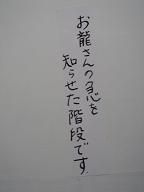 お龍さんの急を
知らせた階段です